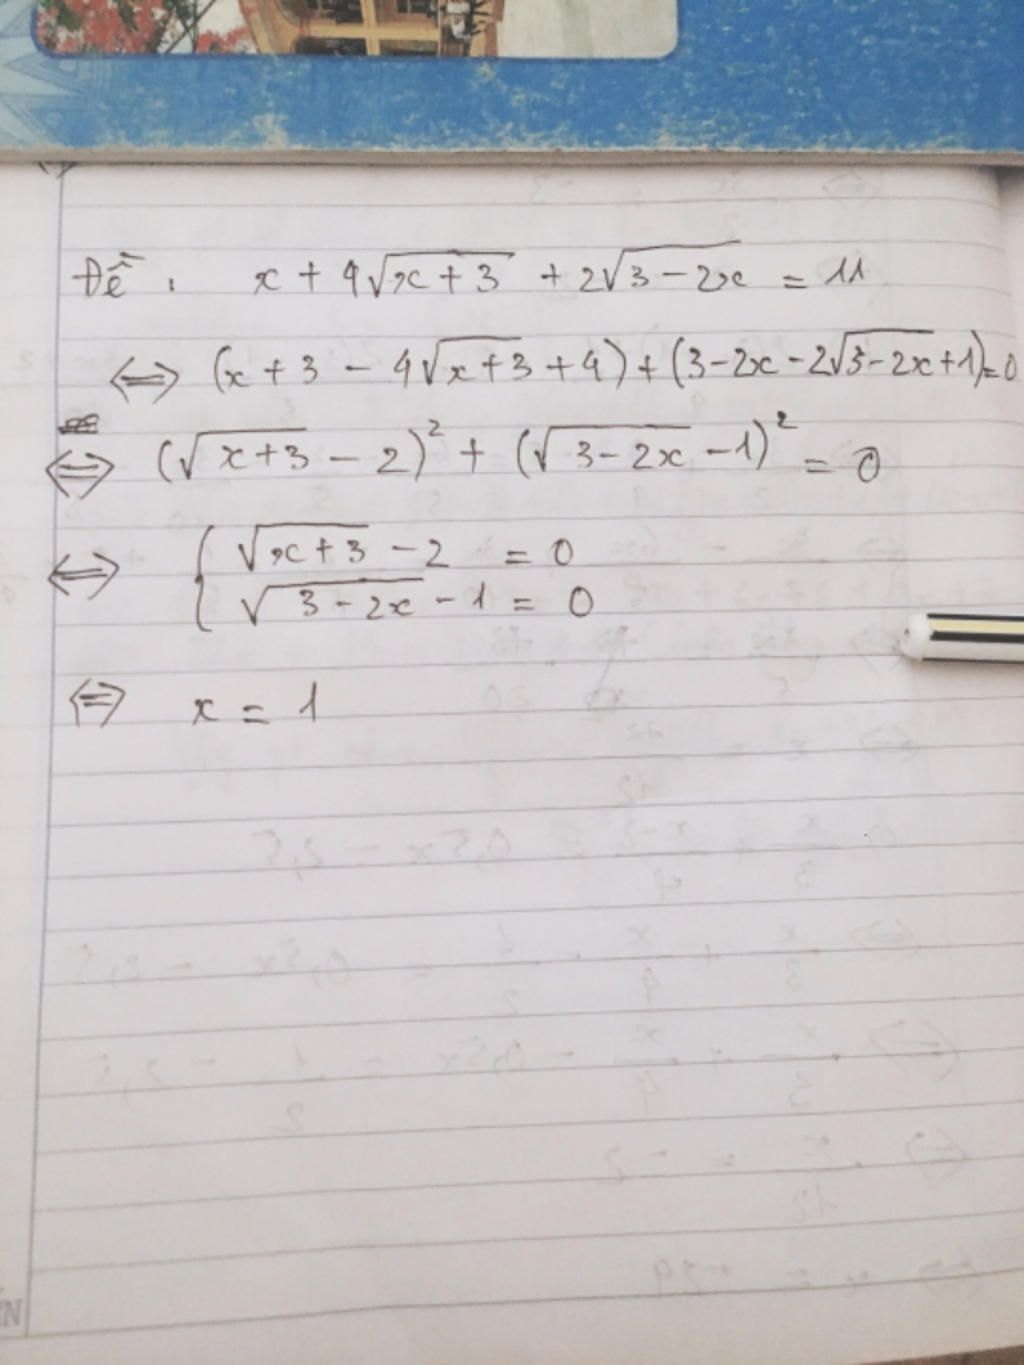 Đề : x + 4√(x+3) + 2√(3-2x) = 11
⇔ (x+3 - 4√(x+3) + 4) + (3-2x - 2√(3-2x) + 1) = 0
⇔ (√(x+3) - 2)² + (√(3-2x) - 1)² = 0
⇔ { √(x+3) - 2 = 0
√(3-2x) - 1 = 0
⇔ x = 1